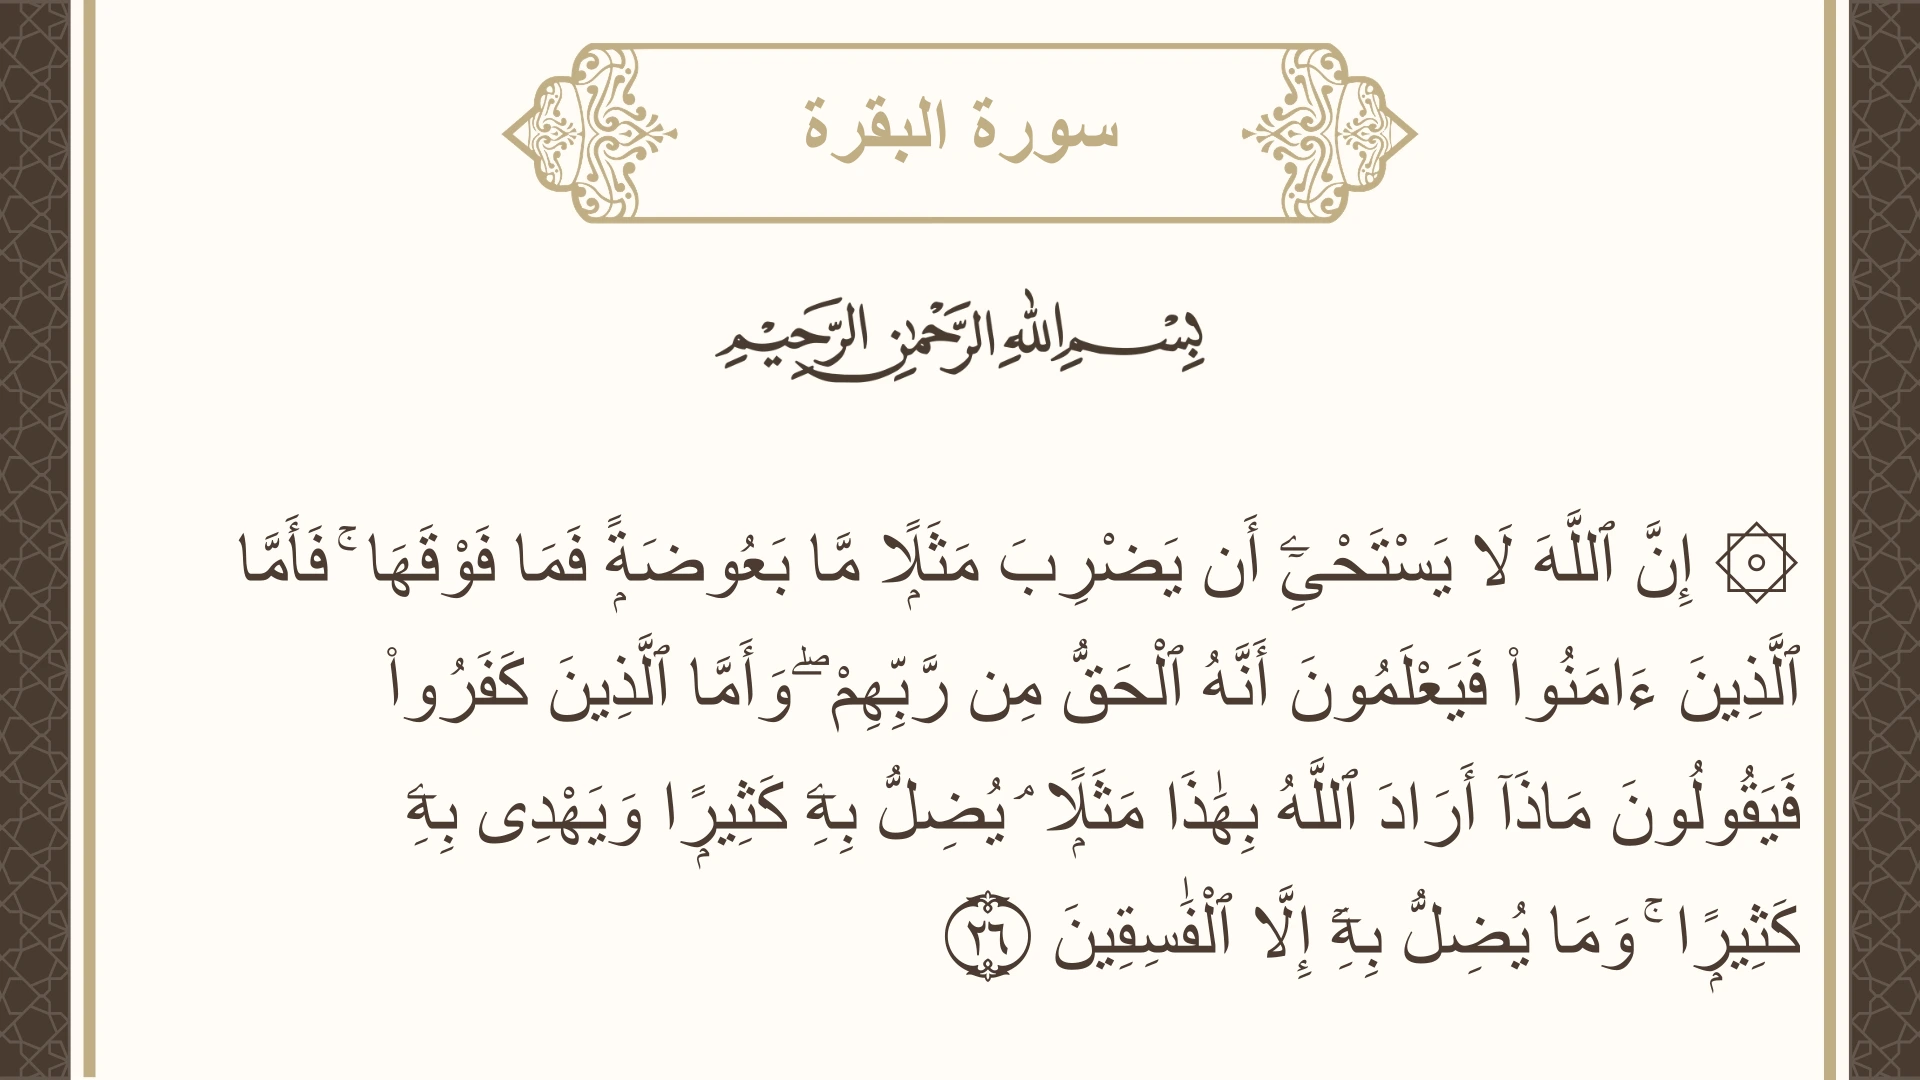 سورة البقرة
بِسْمِ اللهِ الرَّحْمٰنِ الرَّحِيْمِ
۞ إِنَّ ٱللَّهَ لَا يَسْتَحْىِۦٓ أَن يَضْرِبَ مَثَلًۭا مَّا بَعُوضَةًۭ فَمَا فَوْقَهَا ۚ فَأَمَّا
ٱلَّذِينَ ءَامَنُوا۟ فَيَعْلَمُونَ أَنَّهُ ٱلْحَقُّ مِن رَّبِّهِمْ ۖ وَأَمَّا ٱلَّذِينَ كَفَرُوا۟
فَيَقُولُونَ مَاذَآ أَرَادَ ٱللَّهُ بِهَٰذَا مَثَلًۭا ۘ يُضِلُّ بِهِۦ كَثِيرًۭا وَيَهْدِى بِهِۦ
كَثِيرًۭا ۚ وَمَا يُضِلُّ بِهِۦٓ إِلَّا ٱلْفَٰسِقِينَ ٢٦